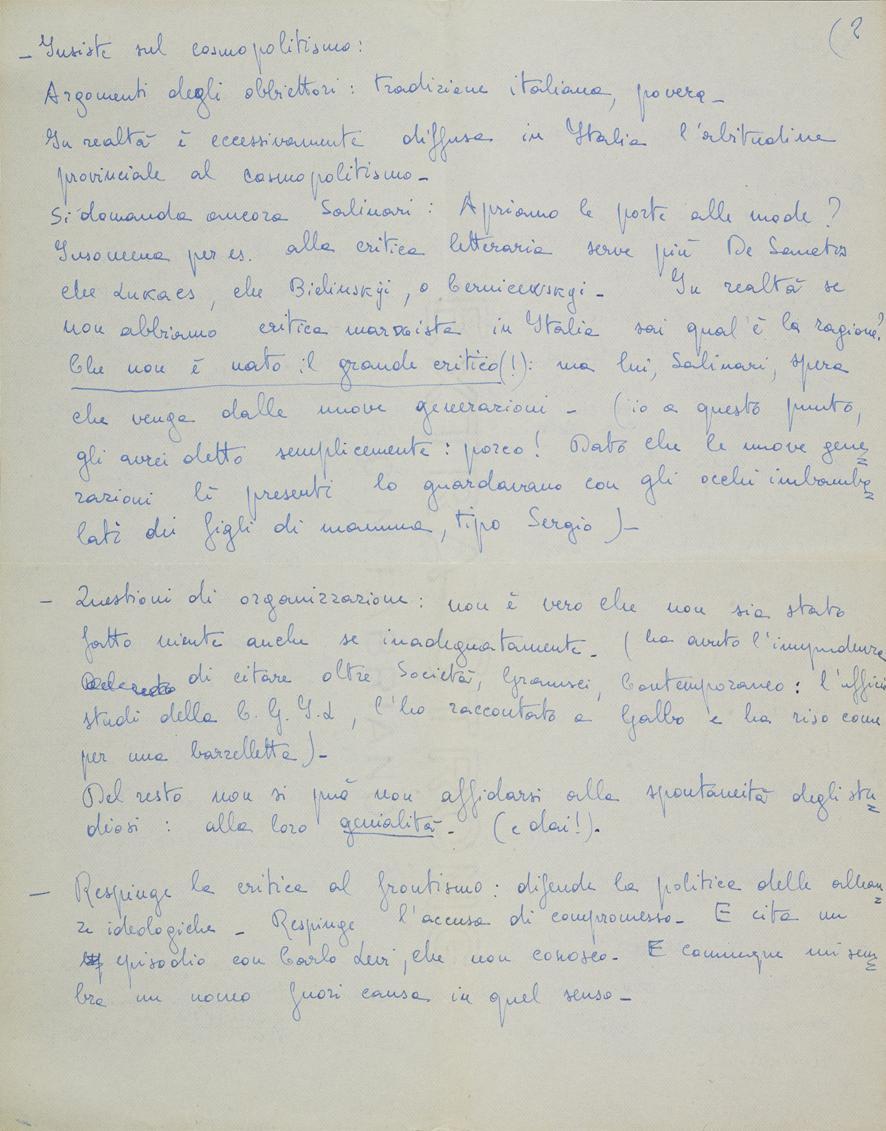 (2
- Insiste sul cosmopolitismo:
Argomenti degli obbiettori: tradizione italiana, povera -
In realtà è eccessivamente diffusa in Italia l'abitudine
provinciale al cosmopolitismo -
Si domanda ancora Salinari: Apriamo le porte alle mode?
Insomma per es. alla critica letteraria serve più De Sanctis
che Lukacs, che Bielinskji, o Cernicewskgi - In realtà se
non abbiamo critica marxista in Italia sai qual'è la ragione?
Che non è nato il grande critico(!): ma lui, Salinari, spera
che venga dalle nuove generazioni - (io a questo punto,
gli avrei detto semplicemente: porco! Dato che le nuove gene=
razioni lì presenti lo guardavano con gli occhi imbambo=
lati dei figli di mamma, tipo Sergio) -
- Questioni di organizzazione: non è vero che non sia stato
fatto niente anche se inadeguatamente - (ha avuto l'impudenza
di citare oltre Società, Gramsci, Contemporaneo: l'ufficio
studi della C.G.I.L, l'ho raccontato a Galbo e ha riso come
per una barzelletta) -
Del resto non si può non affidarsi alla spontaneità degli stu=
diosi: alla loro genialità - (e dai!).
- Respinge la critica al frontismo: difende la politica delle allean=
ze ideologiche - Respinge l'accusa di compromesso - E cita un
episodio con Carlo Levi, che non conosco - E comunque mi sem=
bra un uomo fuori causa in quel senso -